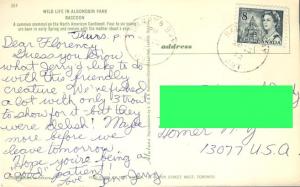 WILD LIFE IN ALGONQUIN PARK
RACCOON
A common mammal on the North American Continent. Four to six young
are born in early Spring and remain with the mother about a year.
Thurs. p.m.
Dear Florency,
Guess you know
what Jerry'd like to do
with this friendly
creature. We've fished
a lot with only 3 trout
to show for it - but they
were delish! Maybe
more before we
leave tomorrow.
Hope you're being a
good "patient"!
Love Jerry
address
8
CANADA
Homer N.Y.
13077 U.S.A
STREET WEST, TORONTO